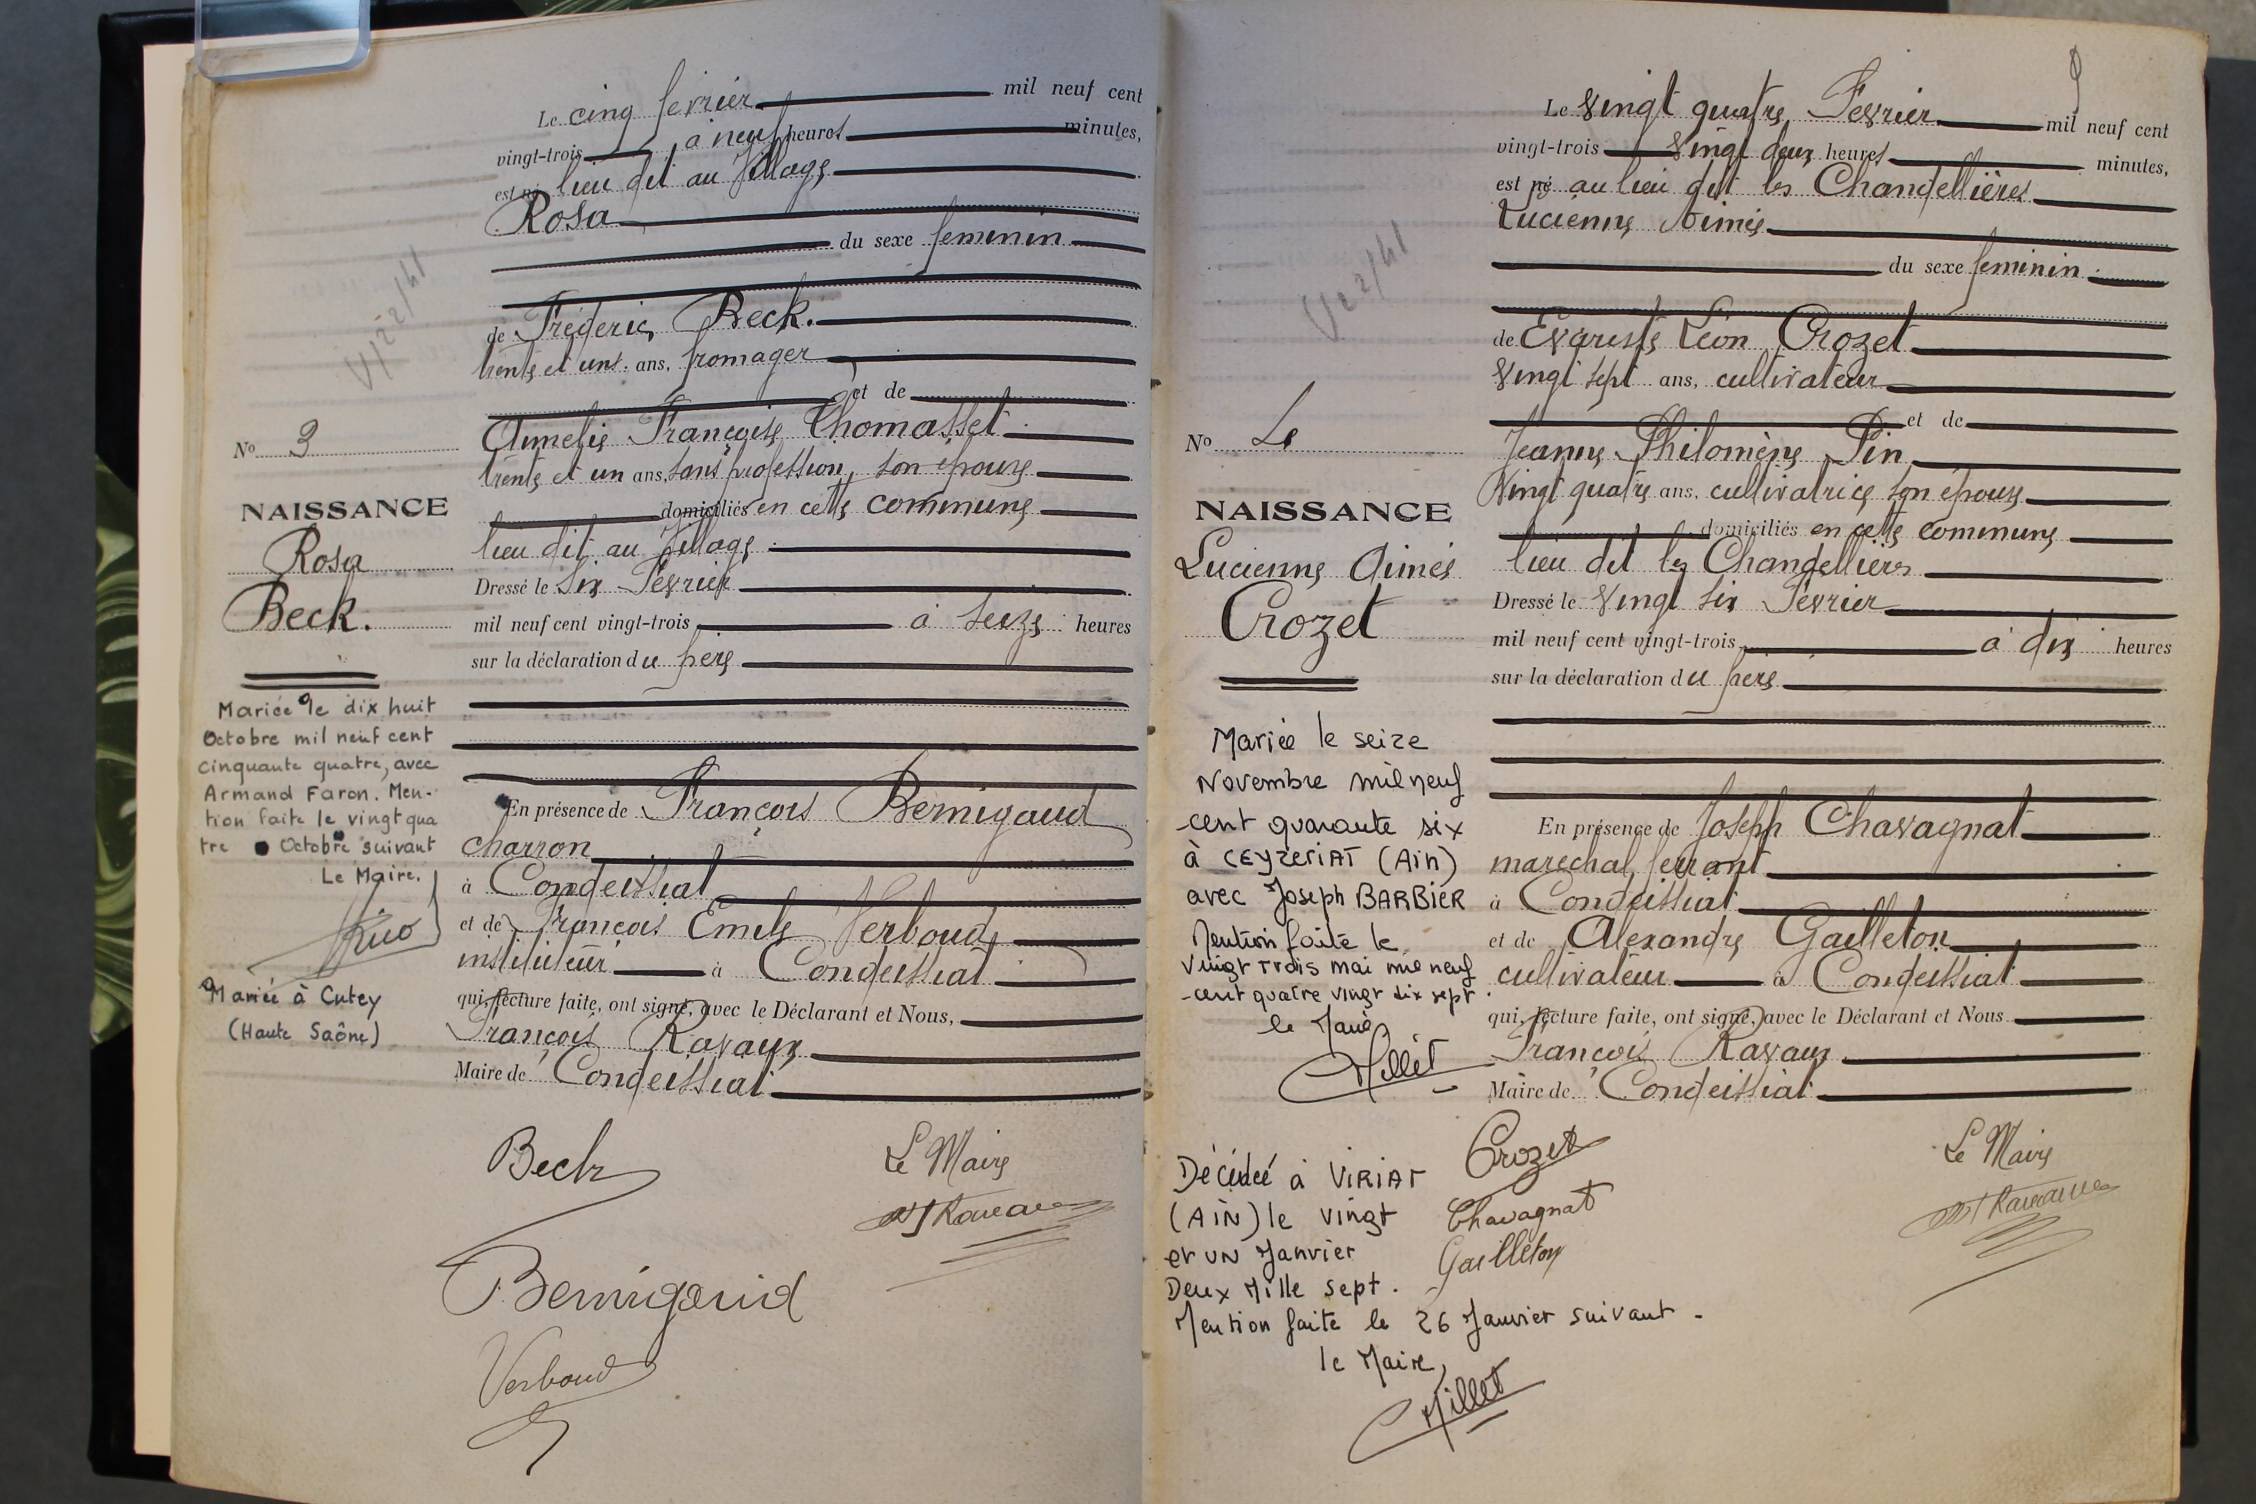 Le cinq février mil neuf cent
vingt-trois à neuf heures minutes,
est né lieu dit au Village
Rosa
du sexe féminin
de Fréderic Beck.
trente et une ans, fromager
et de
Françoise Thomasset
trente et un ans, sans profession, son épouse
domiciliés en cette commune
lieu dit au Village
Dressé le six Février
mil neuf cent vingt-trois à seize heures
sur la déclaration du père
En présence de François Bernigaud
charron
à Condeissiat
et de François Emile Verboud
instituteur à Condeissiat
qui, lecture faite, ont signé, avec le Déclarant et Nous,
François Ravaux
Maire de Condeissiat
No 3
NAISSANCE
Rosa
Beck.
Mariée le dix huit
Octobre mil neuf cent
cinquante quatre, avec
Armand Faron. Men-
tion faite le vingt qua
tre Octobre suivant
Le Maire.
Mariée à Cutey
(Haute Saône)
Beck
Le Maire
Bernigaud
Verboud
Le vingt quatre Février mil neuf cent
vingt-trois vingt deux heures minutes,
est né au lieu dit les Chandellières
Lucienne Aimée
du sexe féminin
de Evariste Léon Crozet
vingt sept ans, cultivateur
et de
Jeanne Philomène Pin
vingt quatre ans, cultivatrice son épouse
domiciliés en cette commune
lieu dit les Chandellières
Dressé le vingt six Février
mil neuf cent vingt-trois à dix heures
sur la déclaration du père
En présence de Joseph Chavagnat
maréchal ferrant
à Condeissiat
et de Alexandre Gailleton
cultivateur à Condeissiat
qui, lecture faite, ont signé, avec le Déclarant et Nous
François Ravaux
Maire de Condeissiat
No
NAISSANCE
Lucienne Aimée
Crozet
Mariée le seize
Novembre mil neuf
cent quarante six
à CEYZERIAT (Ain)
avec Joseph BARBIER
Mention faite le
vingt trois mai mil neuf
-cent quatre vingt dix sept.
le Maire
Millet
Décédée à VIRIAT
(AIN) le vingt
et un Janvier
Deux Mille sept.
Mention faite le 26 Janvier suivant -
le Maire,
Millet
Crozet
Chavagnat
Gailleton
Le Maire